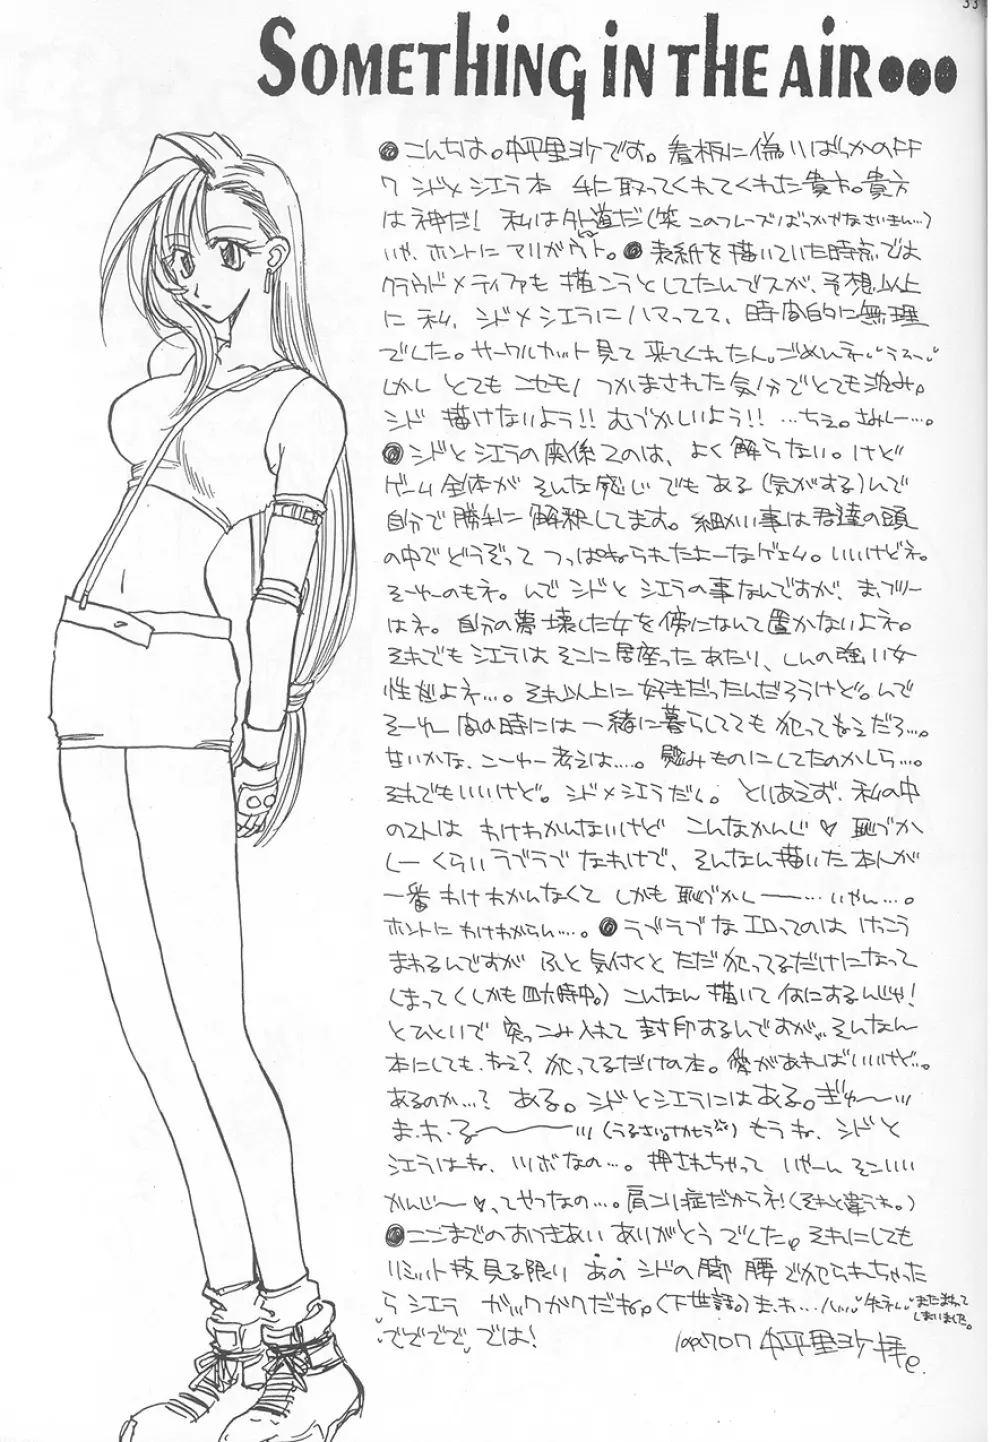 SOMETHING IN THE AIR●●●
●こんちは。中平里沙です。看板に偽りばっかのFF
7 シドとシエラ本 手に取ってくれてくれた貴方。貴方
は神だ! 私は外道だ(笑 このフレーズばっかやなさいきん…)
いや、ホントに アリガウト。●表紙を描いていた時点では
クラウド×ティファも 描こうとしてたんでスが、予想以上
に 私、シド×シエラにハマってて、時間的に無理
でした。サークルカット見て 来てくれたん。ごめんネ
しかし とても ニセモノ つかまされた気分でとても沈み。
シド 描けないよう!! むづかしいよう!! …ちえ。
●シドと シエラの関係っつのは、よく 解らない。けど
ゲーム 全体が そんな感じ でも ある(気がする)んで
自分で勝手に 解釈してます。細かい事は君達の頭
の中で どうぞって つっぱねられたよーなゲェム。いいけどネ。
そーゆーのもネ。んで シドと シエラの事なんですが、ま、フツー
はネ。自分の夢 壊した女を傍になんて置かないよネ。
それでも シエラは そこに居座った あたり、しんの強い女
性だよネ…。それ以上に 好きだったんだろうけど。んで
そーゆー 間の時には 一緒に暮らしてても 犯ってねえだろ…。
甘いかな、こーゆー 考えは…。慰みものにしてたのかしら…。
それでもいいけど。シド×シエラだし。とりあえず、私の中
のストは わけわかんないけど こんなかんじ♥ 恥づか
しー くらいラブラブで なわけで、そんなん描いた本人が
一番 わけわかんなくて しかも 恥づかしー――…いやん…。
ホントに わけわからん…。●ラブラブな エロってのは けっこう
まわるんですが ふと 気付くと ただ犯ってるだけになって
しまって(しかも 四六時中。) こんなん 描いて 何にするんじゃ!
とひといで 突っこみ入れて 封印するんですが… そんなん
本にしても、ねえ? 犯ってるだけの本。愛があればいいけど…。
あるのか…? ある。シドとシエラにはある。ぎゅ〜
ま・わ・る〜 もうね、シドと
シエラはね、ツボなの…。押されちゃって いやーん そこいい
かんじ〜♥ってやつなの…。肩こり症だからネ!(それと違うわ。)
●ここまでのおつきあい ありがとう でした。それにしても
リミット技 見る限り あの シドの脚 腰 で犯られちゃった
ら シエラ ガックガクだね。(下世話。) また
しまいました。
でででで では!
中平里沙 拝